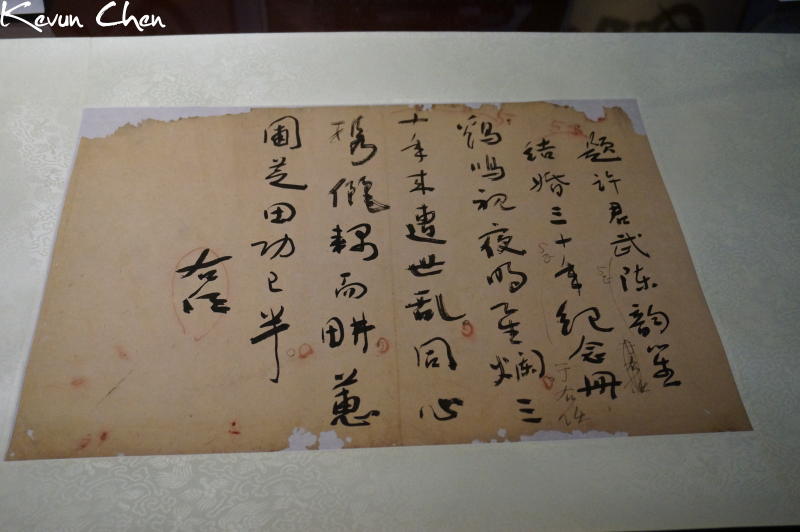 Kevun Chen
題許君武陳韵
結婚三十年紀念冊
于右任
鷄鳴視夜明星爛三
十年來遭世乱同心
携儷耦而畊蕙
圃芝田功已半
右任